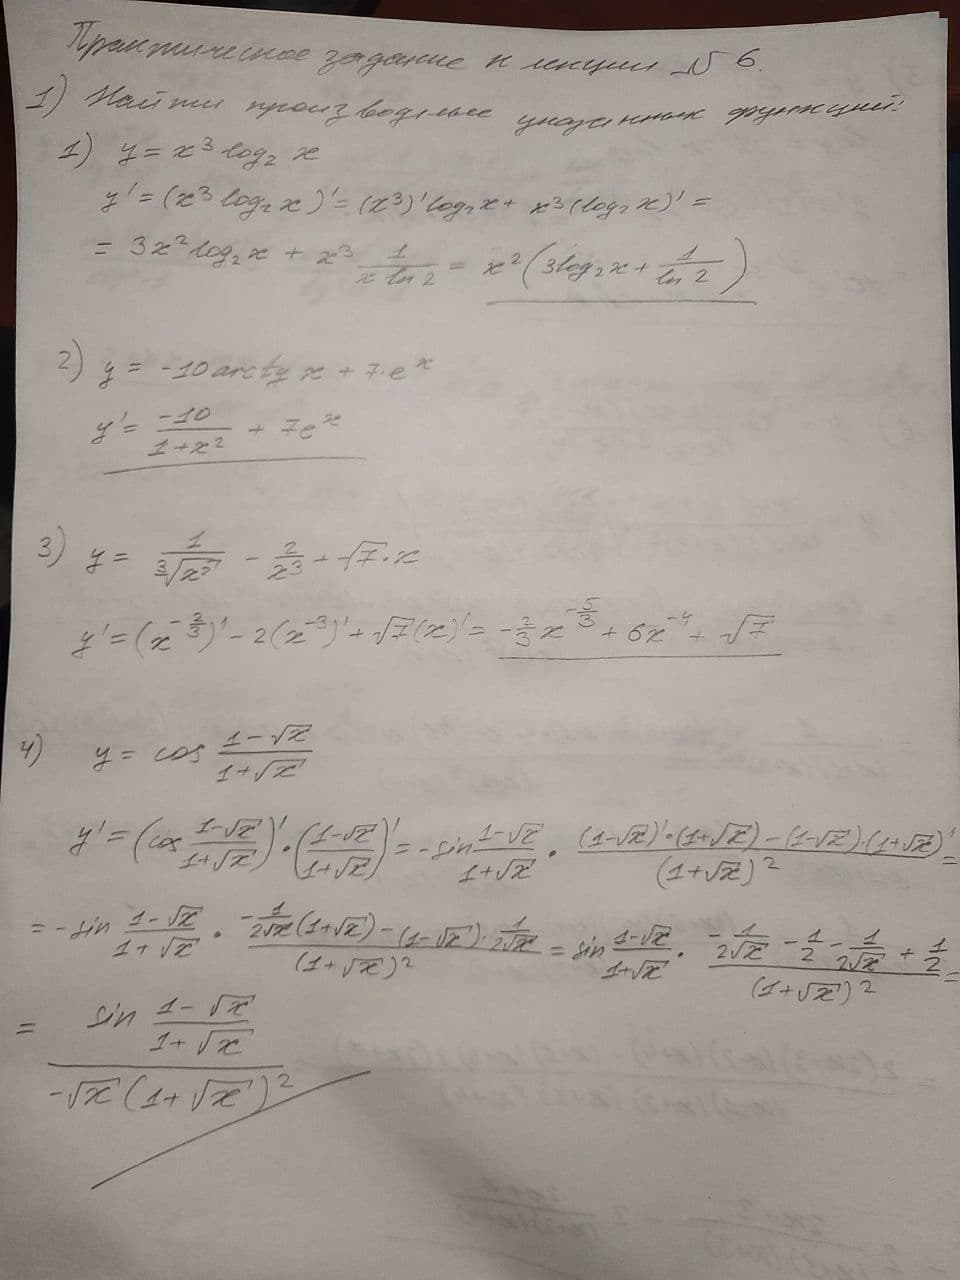 Практическое задание к лекции № 6.
1) Найти производные указанных функций:
1) y = x³ log₂ x
y' = (x³ log₂ x)' = (x³)' log₂ x + x³ (log₂ x)' =
= 3x² log₂ x + x³ 1/(x ln 2) = x² (3log₂ x + 1/(ln 2))
2) y = -10 arctg x + 7·eˣ
y' = -10/(1+x²) + 7eˣ
3) y = 1/∛(x²) - 2/x³ + √7·x
y' = (x^(-2/3))' - 2(x⁻³)' + √7(x)' = -2/3 x^(-5/3) + 6x⁻⁴ + √7
4) y = cos (1-√x)/(1+√x)
y' = (cos (1-√x)/(1+√x))' · ((1-√x)/(1+√x))' = -sin (1-√x)/(1+√x) · ((1-√x)'·(1+√x) - (1-√x)·(1+√x)')/(1+√x)² =
= -sin (1-√x)/(1+√x) · (-1/(2√x) (1+√x) - (1-√x)·1/(2√x))/(1+√x)² = sin (1-√x)/(1+√x) · (-1/(2√x) - 1/2 - 1/(2√x) + 1/2)/(1+√x)² =
= (sin (1-√x)/(1+√x))/(-√x (1+√x)²)